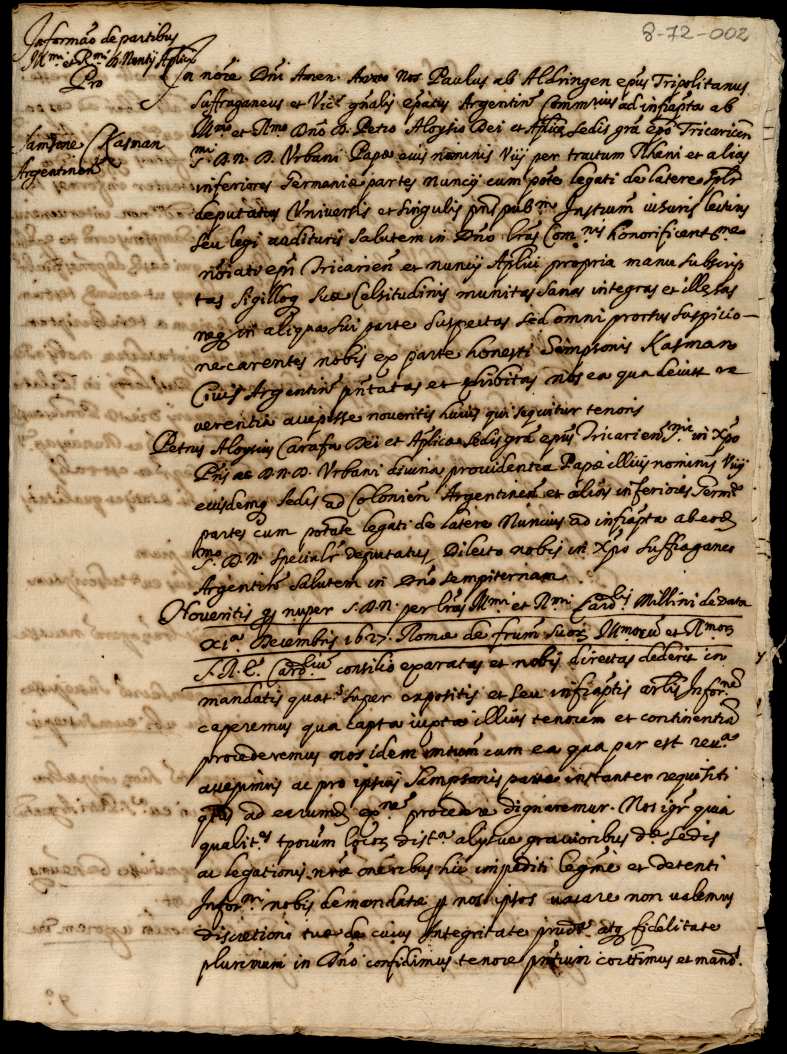 8-72-002
Informão de partibus
Ill.mi et R.mi D. Nuntij Aplici
Pro
Samsone Kasman
Argentinen
In nõie Dñi Amen. Nos Paulus ab Aldringen epus Tripolitanus
Suffraganeus et Vic.s gñalis epatus Argentinẽ Comm.rius ad infrapta ab
Ill.mo et R.mo Dño D. Petro Aloysio Dei et Aplicæ Sedis grã epo Tricaricen
S.mi D. N. D. Urbani Papæ eius nominis Viij per tractum Rheni et alias
inferiores Germaniæ partes Nuncij cum põte legati de latere splr
deputatus Universis et singulis pñs pub.m Instrum visuris lecturis
seu legi audituris salutem in Dño lras Com.nis honorificent.me
nõiati epi Tricariceñ et nuncij Aplici propria manu subscrip
tas sigilloq suæ Celsitudinis munitas sanas integras et illesas
neq in aliqua sui parte suspectas sed omni prorsus suspicio-
ne carentes nobis ex parte honesti Sampsonis Kasman
Civis Argentinẽ pñtatas et exhibitas nos ea qua decuit re
verentia accepisse noveritis huius qui sequitur tenoris
Petrus Aloysius Carafa Dei et Aplicæ Sedis grã epus Tricariceñ S.mi in Xpo
Pris ac D. N. D. Urbani divina providentia Papæ illius nominis Viij
eiusdemq Sedis ad Colonien Argentinem et alios inferiores Germ.æ
partes cum potate legati de latere Nuncius ad infrapta ab eod
S.mo D. N. specialr deputatus, Dilecto nobis in Xpo suffraganeo
Argentinẽ salutem in Dño sempiternam
Noveritis q nuper S. D. N. per lras Ill.mi et R.mi Card.lis Millini de Data
xi.a Decembris 1627. Romæ de frum suor Ill.morũ et R.mor
S. R. E. Card.liũ consilio exaratas et nobis directas dederit in
mandatis quat.s super expositis et seu infraptis arlis Infor.nẽ
caperemus qua capta iuxta illius tenorem et continentiã
procederemus nos idem cum ea qua par est reu.a
accepimus ac pro ipsius Sampsonis parte instanter requisiti
ad earumd ex.nẽ procedere dignaremur. Nos igr quia
qualit.s tporum locor dist.a alysue gravioribus d.æ Sedis
ac legationis nræ oneribus hic impediti legme et detenti
Infor.ni nobis demandatæ p nos ipsos vacare non valemus
discretioni tuæ de cuius Integritate prud.a atq fidelitate
plurimum in Dño confidimus tenore pñtium comittimus et mand.